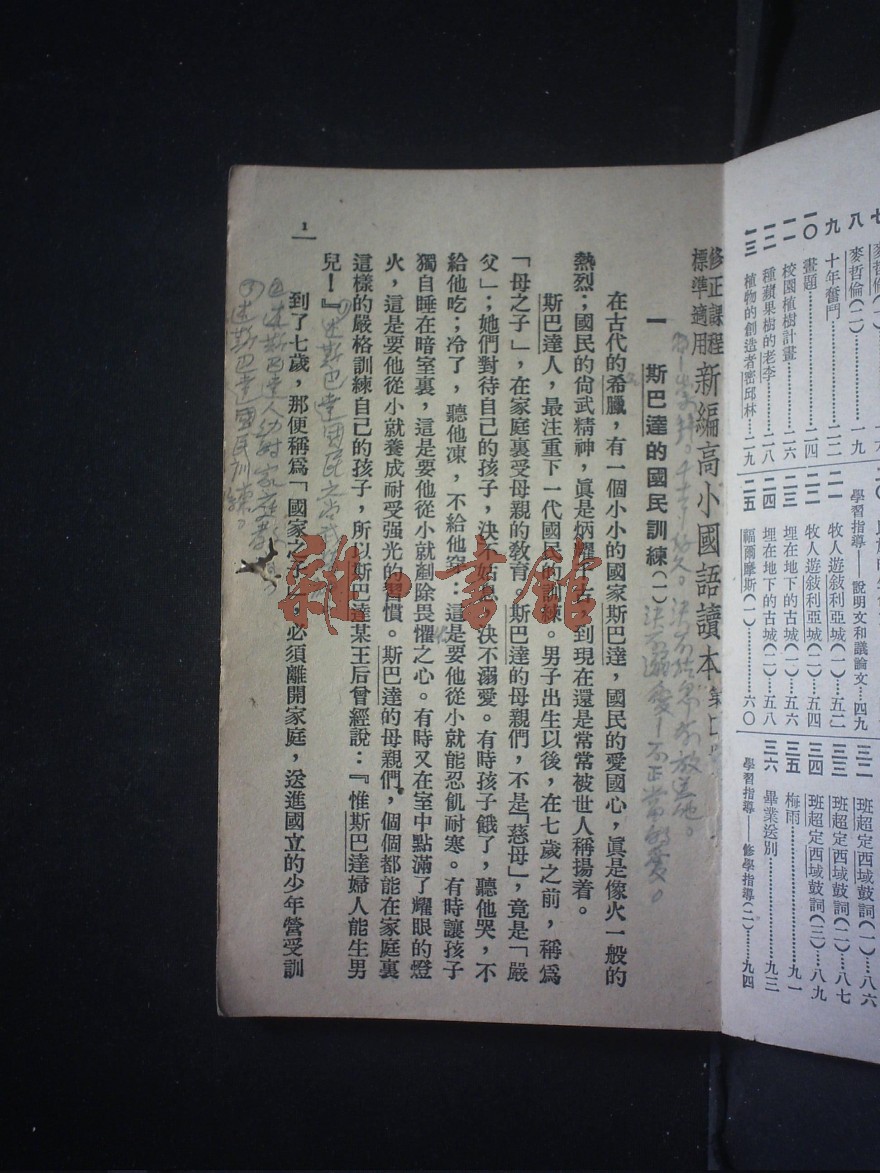 七 麥哲倫
八 麥哲倫(二)……一九
九 十年奮鬥……二二
一〇 畫題……二四
一一 校園植樹計畫……二六
一二 種蘋果樹的老李……二八
一三 植物的創造者密邱林……二九
學習指導——說明文和議論文……四九
二一 牧人遊敍利亞城(一)……五二
二二 牧人遊敍利亞城(二)……五四
二三 埋在地下的古城(一)……五六
二四 埋在地下的古城(二)……五八
二五 福爾摩斯(一)……六〇
三二 班超定西域鼓詞(一)……八六
三三 班超定西域鼓詞(二)……八七
三四 班超定西域鼓詞(三)……八九
三五 梅雨……九一
三六 畢業送別……九三
學習指導——修學指導(二)……九四
修正課程
標準適用
新編高小國語讀本
一 斯巴達的國民訓練(一)
決不溺愛—不正常的愛。
在古代的希臘,有一個小小的國家斯巴達,國民的愛國心,眞是像火一般的
熱烈;國民的尙武精神,眞是炳耀千古,到現在還是常常被世人稱揚着。
斯巴達人,最注重下一代國民的訓練。男子出生以後,在七歲之前,稱爲
「母之子」,在家庭裏受母親的敎育。斯巴達的母親們,不是「慈母」,竟是「嚴
父」;她們對待自己的孩子,決不姑息,決不溺愛。有時孩子餓了,聽他哭,不
給他吃;冷了,聽他凍,不給他穿:這是要他從小就能忍飢耐寒。有時讓孩子
獨自睡在暗室裏,這是要他從小就剷除畏懼之心。有時又在室中點滿了耀眼的燈
火,這是要他從小就養成耐受强光的習慣。斯巴達的母親們,個個都能在家庭裏
這樣的嚴格訓練自己的孩子,所以斯巴達某王后曾經說:『惟斯巴達婦人能生男
兒!』
到了七歲,那便稱爲「國家之子」,必須離開家庭,送進國立的少年營受訓
述斯巴達國民訓練。
1
雜·書館